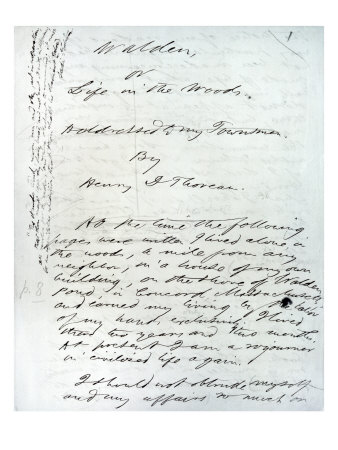 1
Walden,
or
Life in the Woods.
Addressed to my Townsmen.
By
Henry D Thoreau.
At the time the following
pages were written I lived alone, in
the woods, a mile from any
neighbor, in a house of my own
building, on the shore of Walden
Pond, in Concord, Massachusetts,
and earned my living by the labor
of my hands exclusively. I lived
there two years and two months.
At present I am a sojourner
in civilized life again.
I should not obtrude myself
and my affairs so much on
p. 8